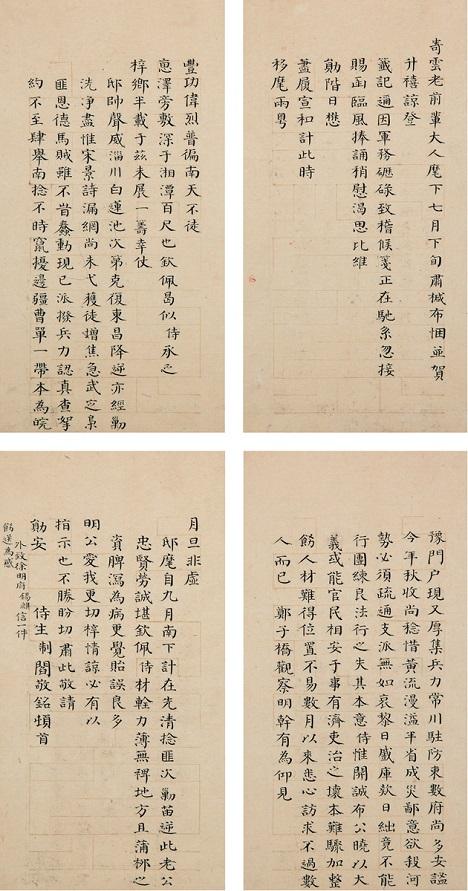 寄雲老前輩大人麾下七月下旬肅椷布悃並賀
升禧諒登
籤記適因軍務碌碌致稽候箋正在馳系忽接
賜函臨風捧誦稍慰渴思比維
勛階日懋
藎履宣和計此時
移麾兩粵
豐功偉烈普徧南天不徒
惠澤旁敷深于湘潭百尺也欽佩曷似侍承乏
梓鄉半載于茲未展一籌幸仗
邸帥聲威淄川白蓮池次第克復東昌降逆亦經勦
洗淨盡惟宋景詩漏網尚未弋獲徒增焦急武定梟
匪恩德馬賊雖不甞蠢動現已派撥兵力認真查拏
約不至肆舉南捻不時竄擾邊疆曹單一帶本為皖
豫門户現又厚集兵力常川駐防東數府尚多安謐
今年秋收尚稔惜黃流漫溢半省成災鄙意欲殺河
勢必須疏通支派無如哀黎日蹙庫欵日絀竟不能
行團練良法行之失其本意侍惟開誠布公曉以大
義或能官民相安于事有濟吏治之壞本難驟加整
飭人材難得位置不易數月以來悉心訪求不過數
人而已 鄭子橋觀察明幹有為仰見
月旦非虛
邸麾自九月南下計在先清捻匪次勦苗逆此老公
忠賢勞誠堪欽佩侍材輇力薄無裨地方且蒲柳之
資脾瀉為病更覺貽誤良多
明公愛我更切梓情諒必有以
指示也不勝盼切肅此敬請
勛安 侍生制閻敬銘頓首
外致徐明府錫麒信一件
飭送為感